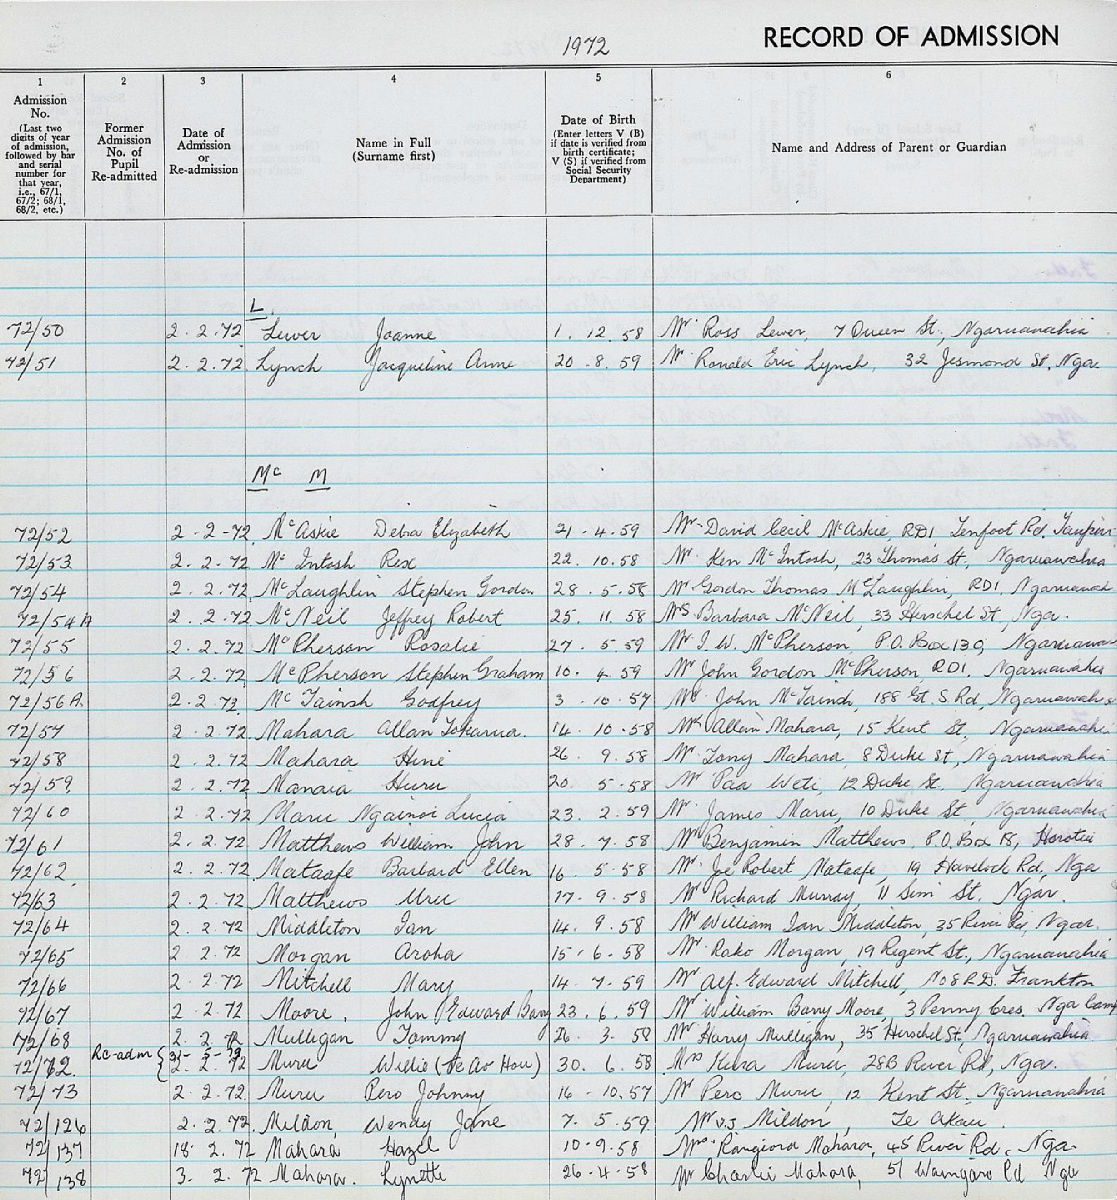 1972 RECORD OF ADMISSION
1 2 3 4 5 6
Admission No. (Last two digits of year of admission, followed by bar and serial number for that year, i.e., 67/1, 67/2; 68/1, 68/2, etc.) Former Admission No. of Pupil Re-admitted Date of Admission or Re-admission Name in Full (Surname first) Date of Birth (Enter letters V (B) if date is verified from birth certificate; V (S) if verified from Social Security Department) Name and Address of Parent or Guardian
L.
72/50 2.2.72 Lewer Joanne 1.12.58 Mr Ross Lewer, 7 Queen St., Ngaruawahia
72/51 2.2.72 Lynch Jacqueline Anne 20.8.59 Mr Ronald Eric Lynch, 32 Jesmond St, Nga.
Mc M
72/52 2-2-72 McAskie Debra Elizabeth 21-4.59 Mr David Cecil McAskie, RD1, Tenfoot Rd, Taupiri
72/53 2.2.72 McIntosh Rex 22.10.58 Mr Ken McIntosh, 23 Thomas St., Ngaruawahia
72/54 2.2.72 McLaughlin Stephen Gordon 28.5.58 Mr Gordon Thomas McLaughlin, RD1, Ngaruawah
72/54A 2.2.72 McNeil Jeffrey Robert 25.11.58 Mrs Barbara McNeil, 33 Herschel St, Nga.
72/55 2.2.72 McPherson Rosalie 27.5.59 Mr I.W. McPherson, P.O. Box 139, Ngaruawa
72/56 2.2.72 McPherson Stephen Graham 10.4.59 Mr John Gordon McPherson, RD1. Ngaruawahia
72/56A. 2.2.72. McTainsh Godfrey 3.10.57 Mr John McTainsh, 188 Gt. S Rd, Ngaruawahia
72/57 2.2.72 Mahara Allan 14.10.58 Mr Allan Mahara, 15 Kent St, Ngaruawahia
72/58 2.2.72 Mahara Hine 26.9.58 Mr Tony Mahara, 8 Duke St, Ngaruawahia
72/59 2.2.72 Manaia Huru 20.5-58 Mr Paa Weti, 12 Duke St. Ngaruawahia
72/60 2.2.72 Maru Ngainoi Lucia 23.2.59 Mr James Maru, 10 Duke St, Ngaruawahia
72/61 2.2.72 Matthews William John 28.7.58 Mr Benjamin Matthews, P.O. Box 18, Horotiu
72/62. 2.2.72 Mataafe Barbard Ellen 16.5-58 Mr Joe Robert Mataafe, 19 Havelock Rd, Nga
72/63 2.2.72 Matthews Uru 17.9.58 Mr Richard Murray, 11 St. Ngar.
72/64 2.2.72 Middleton Ian 14.9.58 Mr William Ian Middleton, 35 River Rd, Ngar.
72/65 2.2.72 Morgan Aroha 15.6.58 Mr Rako Morgan, 19 Regent St., Ngaruawahia
72/66 2.2.72 Mitchell Mary 14.7.59 Mr Alf. Edward Mitchell, No 8 R.D. Frankton
72/67 2.2.72 Moore. John (Edward Barry 23.6.59 Mr William Barry Moore, 3 Penny Cres. Nga Camp
72/68 2.2.72 Mulligan Tommy 26.3.58 Mr Harry Mulligan, 35 Herschel St., Ngaruawahia
72/72. Re-adm { 2.2.72 Muru Willie 30.6.58 Mrs Kura Muru, 28B River Rd, Nga.
72/73 2.2.72 Muru Pero Johnny 16-10.57 Mr Pero Muru, 12 Kent St. Ngaruawahia
72/126 2.2.72 Mildon Wendy Jane 7.5.59 Mr V.S Mildon, Te Akau.
72/137 18.2.72 Mahara Hazel 10.9.58 Mrs Rangiora Mahara, 45 River Rd. Nga.
72/138 3.2.72 Mahara. Lynette 26.4.58 Mr Charlie Mahara, 51 Waingaro Rd Nga